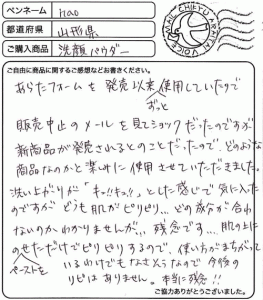 ペンネーム nao
都道府県 山形県
ご購入商品 洗顔パウダー
CHIEFU ARAKAI VOICE MAIL
ご自由に商品に関するご感想などお書きください。
あらたフォームを発売以来ずっと使用していたので
販売中止のメールを見てショックだったのですが
新商品が発売されるとのことだったので、どのような
商品なのかと楽しみに使用させていただきました。
洗い上がりが キュッ!!キュッ!! とした感じで気に入った
のですが どうも肌がピリピリ… どの成分が合わ
ないのかわかりませんが… 残念です… 肌の上に
ペーストをのせただけでピリピリするので、使い方がまちがって
いるわけでもなさそうなので 今後の
リピはありません。本当に残念!!
ご協力ありがとうございました。